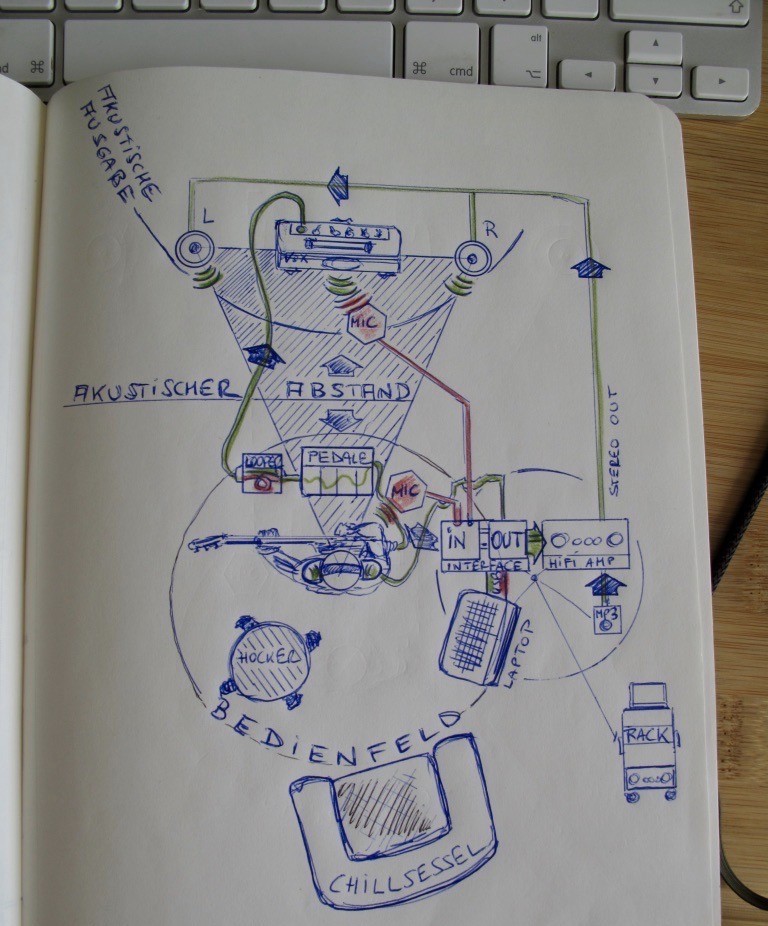 cmd
alt
AKUSTISCHE
AUSGABE
L
R
VOX
MIC
AKUSTISCHER ABSTAND
STEREO OUT
LOOPER
PEDALE
MIC
IN
OUT
INTERFACE
HIFI AMP
USB
MP3
LAPTOP
HOCKER
BEDIENFELD
RACK
CHILLSESSEL